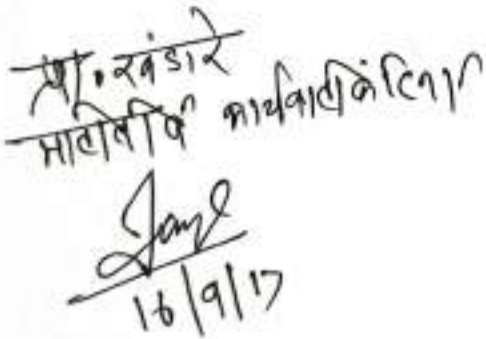 प्रा. खंडारे
माहितीर्थ कार्यवाहीकरिता
16/9/17